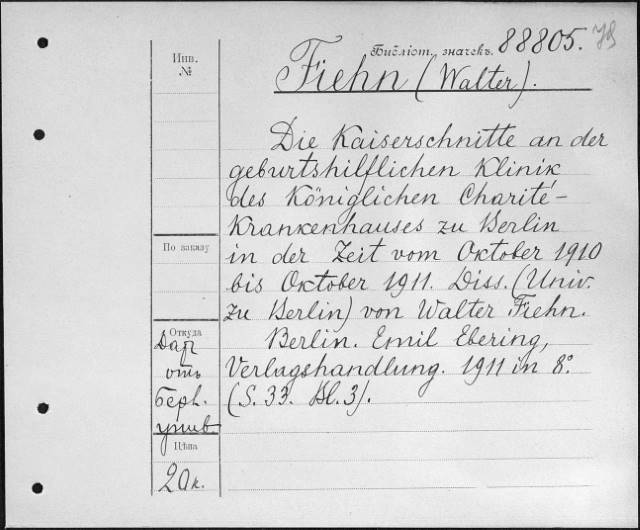 Библіот. значекъ. 88805.
Инв. №
Fiehn (Walter).
Die Kaiserschnitte an der
geburtshilflichen Klinik
des Königlichen Charité-
Krankenhauses zu Berlin
По заказу
in der Zeit vom Oktober 1910
bis Oktober 1911. Diss. (Univ.
zu Berlin) von Walter Fiehn.
Откуда
Berlin. Emil Ebering,
Verlagshandlung. 1911 in 8°.
(S. 33. Bl. 3).
Дар
отъ
Берл.
унив.
Цѣна
20 к.